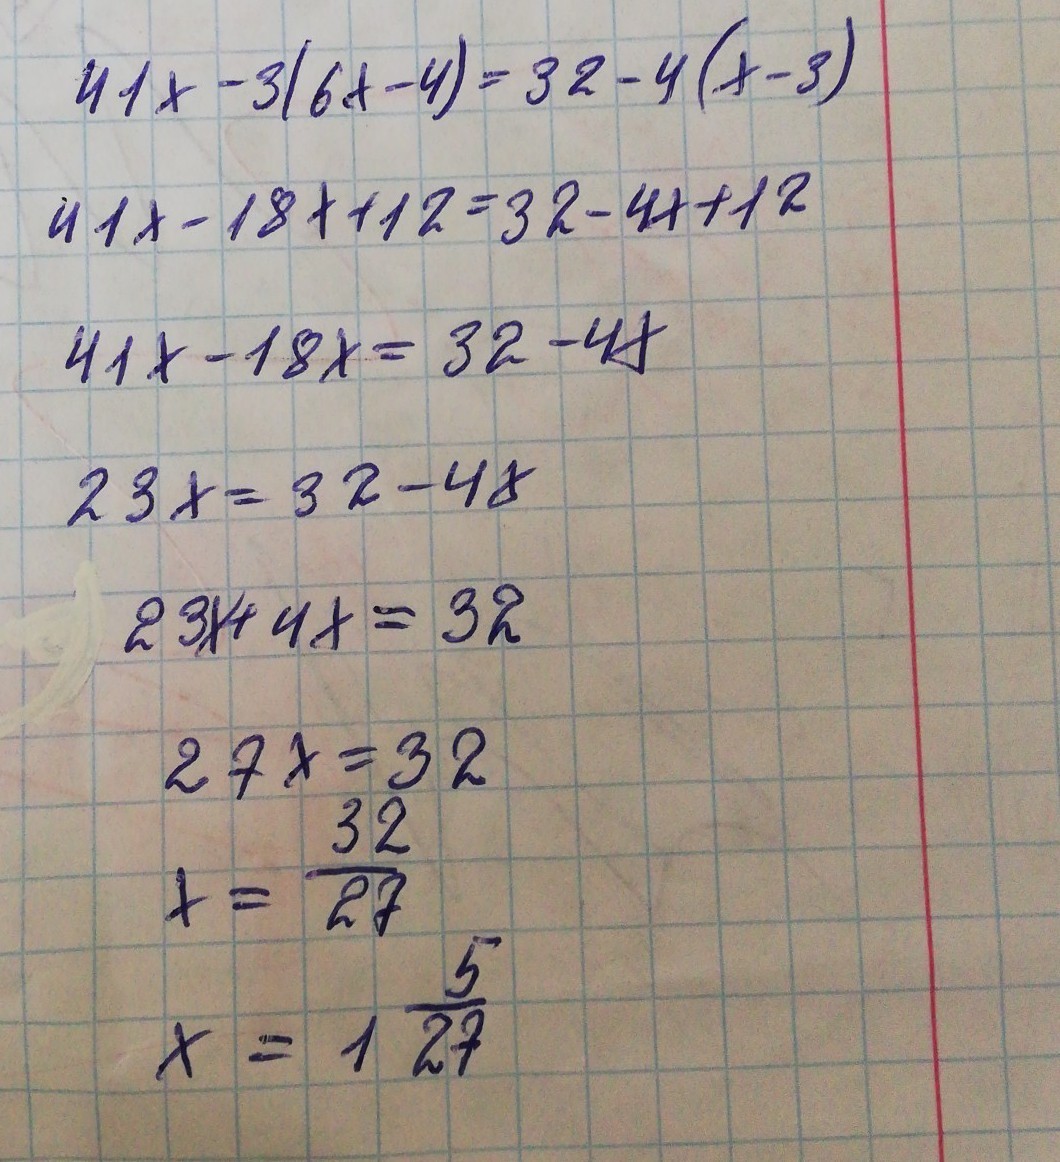 41x - 3(6x - 4) = 32 - 4(x - 3)
41x - 18x + 12 = 32 - 4x + 12
41x - 18x = 32 - 4x
23x = 32 - 4x
23x + 4x = 32
27x = 32
x = 32/27
x = 1 5/27